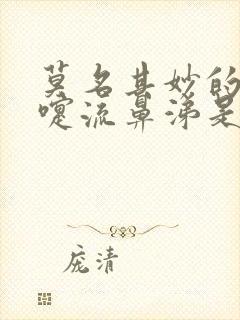 莫名其妙的
嚏流鼻涕是
庞清